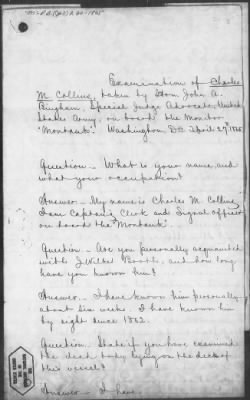 Examination of Charles
M Collins, taken by Hon. John A.
Bingham, Special Judge Advocate, United
States Army, on board the Monitor
"Montauk". Washington, DC April 27th 1865
Question – What is your name, and
what your occupation?
Answer – My name is Charles M Collins,
I am Captain's Clerk and Signal officer
on board the "Montauk".
Question – Are you personally acquainted
with J Wilkes Booth, and how long
have you known him?
Answer – I have known him personally
about six weeks. I have known him
by sight since 1862.
Question. State if you have examined
the dead body lying on the deck of
this vessel?
Answer – I have